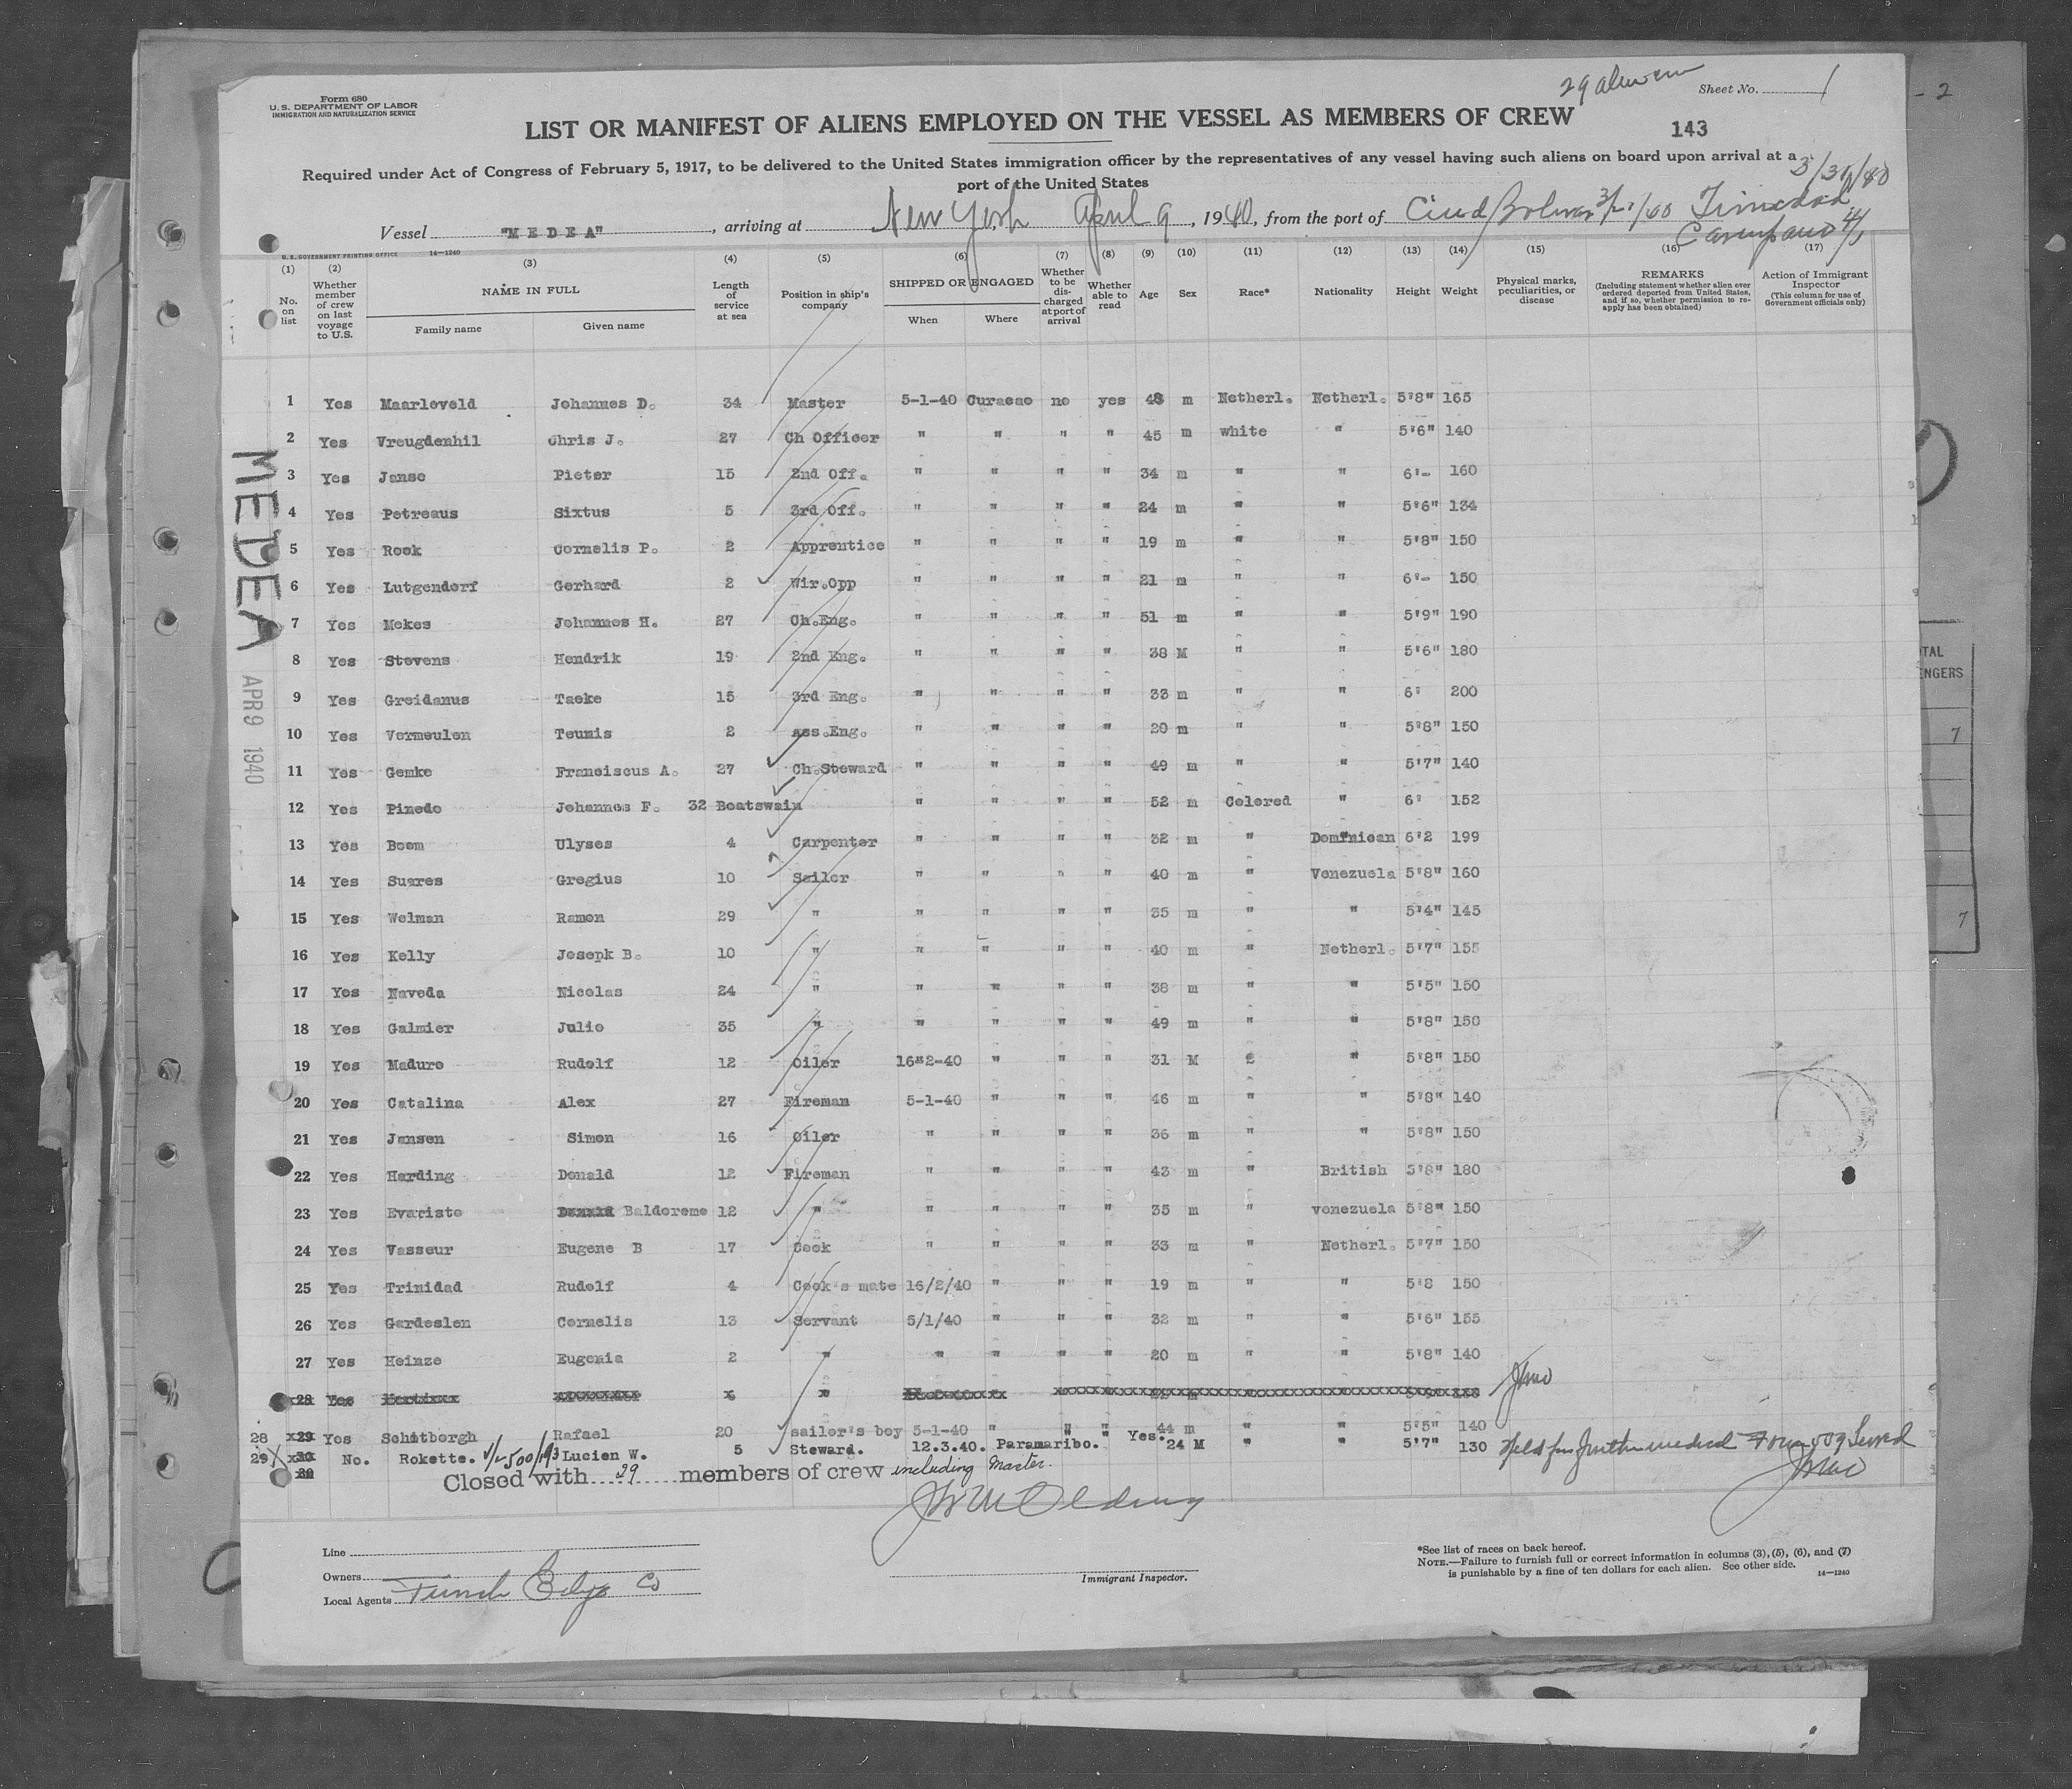 29 alien crew
Form 680
U.S. DEPARTMENT OF LABOR
IMMIGRATION AND NATURALIZATION SERVICE
Sheet No. 1
- 2
LIST OR MANIFEST OF ALIENS EMPLOYED ON THE VESSEL AS MEMBERS OF CREW
143
Required under Act of Congress of February 5, 1917, to be delivered to the United States immigration officer by the representatives of any vessel having such aliens on board upon arrival at a
port of the United States
3/31/40
Vessel "MEDEA", arriving at New York April 9, 1940, from the port of Ciud Bolivar Trinidad
Carupano 4/1
U.S. GOVERNMENT PRINTING OFFICE 14—1240
(1) (2) (3) (4) (5) (6) (7) (8) (9) (10) (11) (12) (13) (14) (15) (16) (17)
No. on list
Whether member of crew on last voyage to U.S.
NAME IN FULL
Family name Given name
Length of service at sea
Position in ship's company
SHIPPED OR ENGAGED
When Where
Whether to be discharged at port of arrival
Whether able to read
Age Sex Race* Nationality Height Weight
Physical marks, peculiarities, or disease
REMARKS
(Including statement whether alien ever ordered deported from United States, and if so, whether permission to reapply has been obtained)
Action of Immigrant Inspector
(This column for use of Government officials only)
1 Yes Maarleveld Johannes D. 34 Master 5-1-40 Curacao no yes 48 m Netherl. Netherl. 5'8" 165
2 Yes Vreugdenhil Chris J. 27 Ch Officer " " " " 45 m white " 5'6" 140
3 Yes Janse Pieter 15 2nd Off. " " " " 34 m " " 6'- 160
4 Yes Petreaus Sixtus 5 3rd Off. " " " " 24 m " " 5'6" 134
5 Yes Rook Cornelis P. 2 Apprentice " " " " 19 m " " 5'8" 150
6 Yes Lutgendorf Gerhard 2 Wir.Opp " " " " 21 m " " 6'- 150
7 Yes Mekes Johannes H. 27 Ch.Eng. " " " " 51 m " " 5'9" 190
8 Yes Stevens Hendrik 19 2nd Eng. " " " " 38 M " " 5'6" 180
9 Yes Greidanus Taeke 15 3rd Eng. " " " " 33 m " " 6' 200
10 Yes Vermeulen Teunis 2 ass.Eng. " " " " 20 m " " 5'8" 150
11 Yes Gemke Franciscus A. 27 Ch.Steward " " " " 49 m " " 5'7" 140
12 Yes Pinedo Johannes F. 32 Boatswain " " " " 52 m Colored " 6' 152
13 Yes Boom Ulyses 4 Carpenter " " " " 32 m " Dominican 6'2 199
14 Yes Suares Gregius 10 Sailor " " " " 40 m " Venezuela 5'8" 160
15 Yes Welman Ramon 29 " " " " " 35 m " " 5'4" 145
16 Yes Kelly Joseph B. 10 " " " " " 40 m " Netherl. 5'7" 155
17 Yes Naveda Nicolas 24 " " " " " 38 m " " 5'5" 150
18 Yes Galmier Julio 35 " " " " " 49 m " " 5'8" 150
19 Yes Maduro Rudolf 12 Oiler 16-2-40 " " " 31 M " " 5'8" 150
20 Yes Catalina Alex 27 Fireman 5-1-40 " " " 46 m " " 5'8" 140
21 Yes Jansen Simon 16 Oiler " " " " 36 m " " 5'8" 150
22 Yes Harding Donald 12 Fireman " " " " 43 m " British 5'8" 180
23 Yes Evaristo Baldoreme 12 " " " " " 35 m " venezuela 5'8" 150
24 Yes Vasseur Eugene B 17 Cook " " " " 33 m " Netherl. 5'7" 150
25 Yes Trinidad Rudolf 4 Cook's mate 16/2/40 " " " 19 m " " 5'8 150
26 Yes Gardeslen Cornelis 13 Servant 5/1/40 " " " 32 m " " 5'6" 155
27 Yes Heinze Eugenia 2 " " " " " 20 m " " 5'8" 140
28 Yes
28 29 Yes Schitborgh Rafael 20 sailor's boy 5-1-40 " " " 44 m " " 5'5" 140
29 30 No. Rokette. Lucien W. 5 Steward. 12.3.40. Paramaribo. Yes. 24 M " " 5'7" 130 Held for further medical Form 509 served
30
Closed with 29 members of crew including Master.
Line
Owners
Local Agents Funch Edye Co
Immigrant Inspector.
*See list of races on back hereof.
NOTE.—Failure to furnish full or correct information in columns (3), (5), (6), and (7)
is punishable by a fine of ten dollars for each alien. See other side.
14—1240
MEDEA
APR 9 1940
TAL
NGERS
7
7